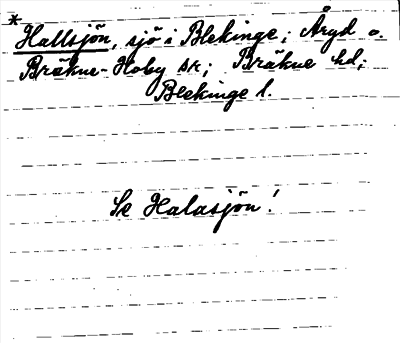 * Hallsjön, sjö i Blekinge; Åryd o.
Bräkne-Hoby sk; Bräkne hd;
Blekinge l.
Se Halasjön!